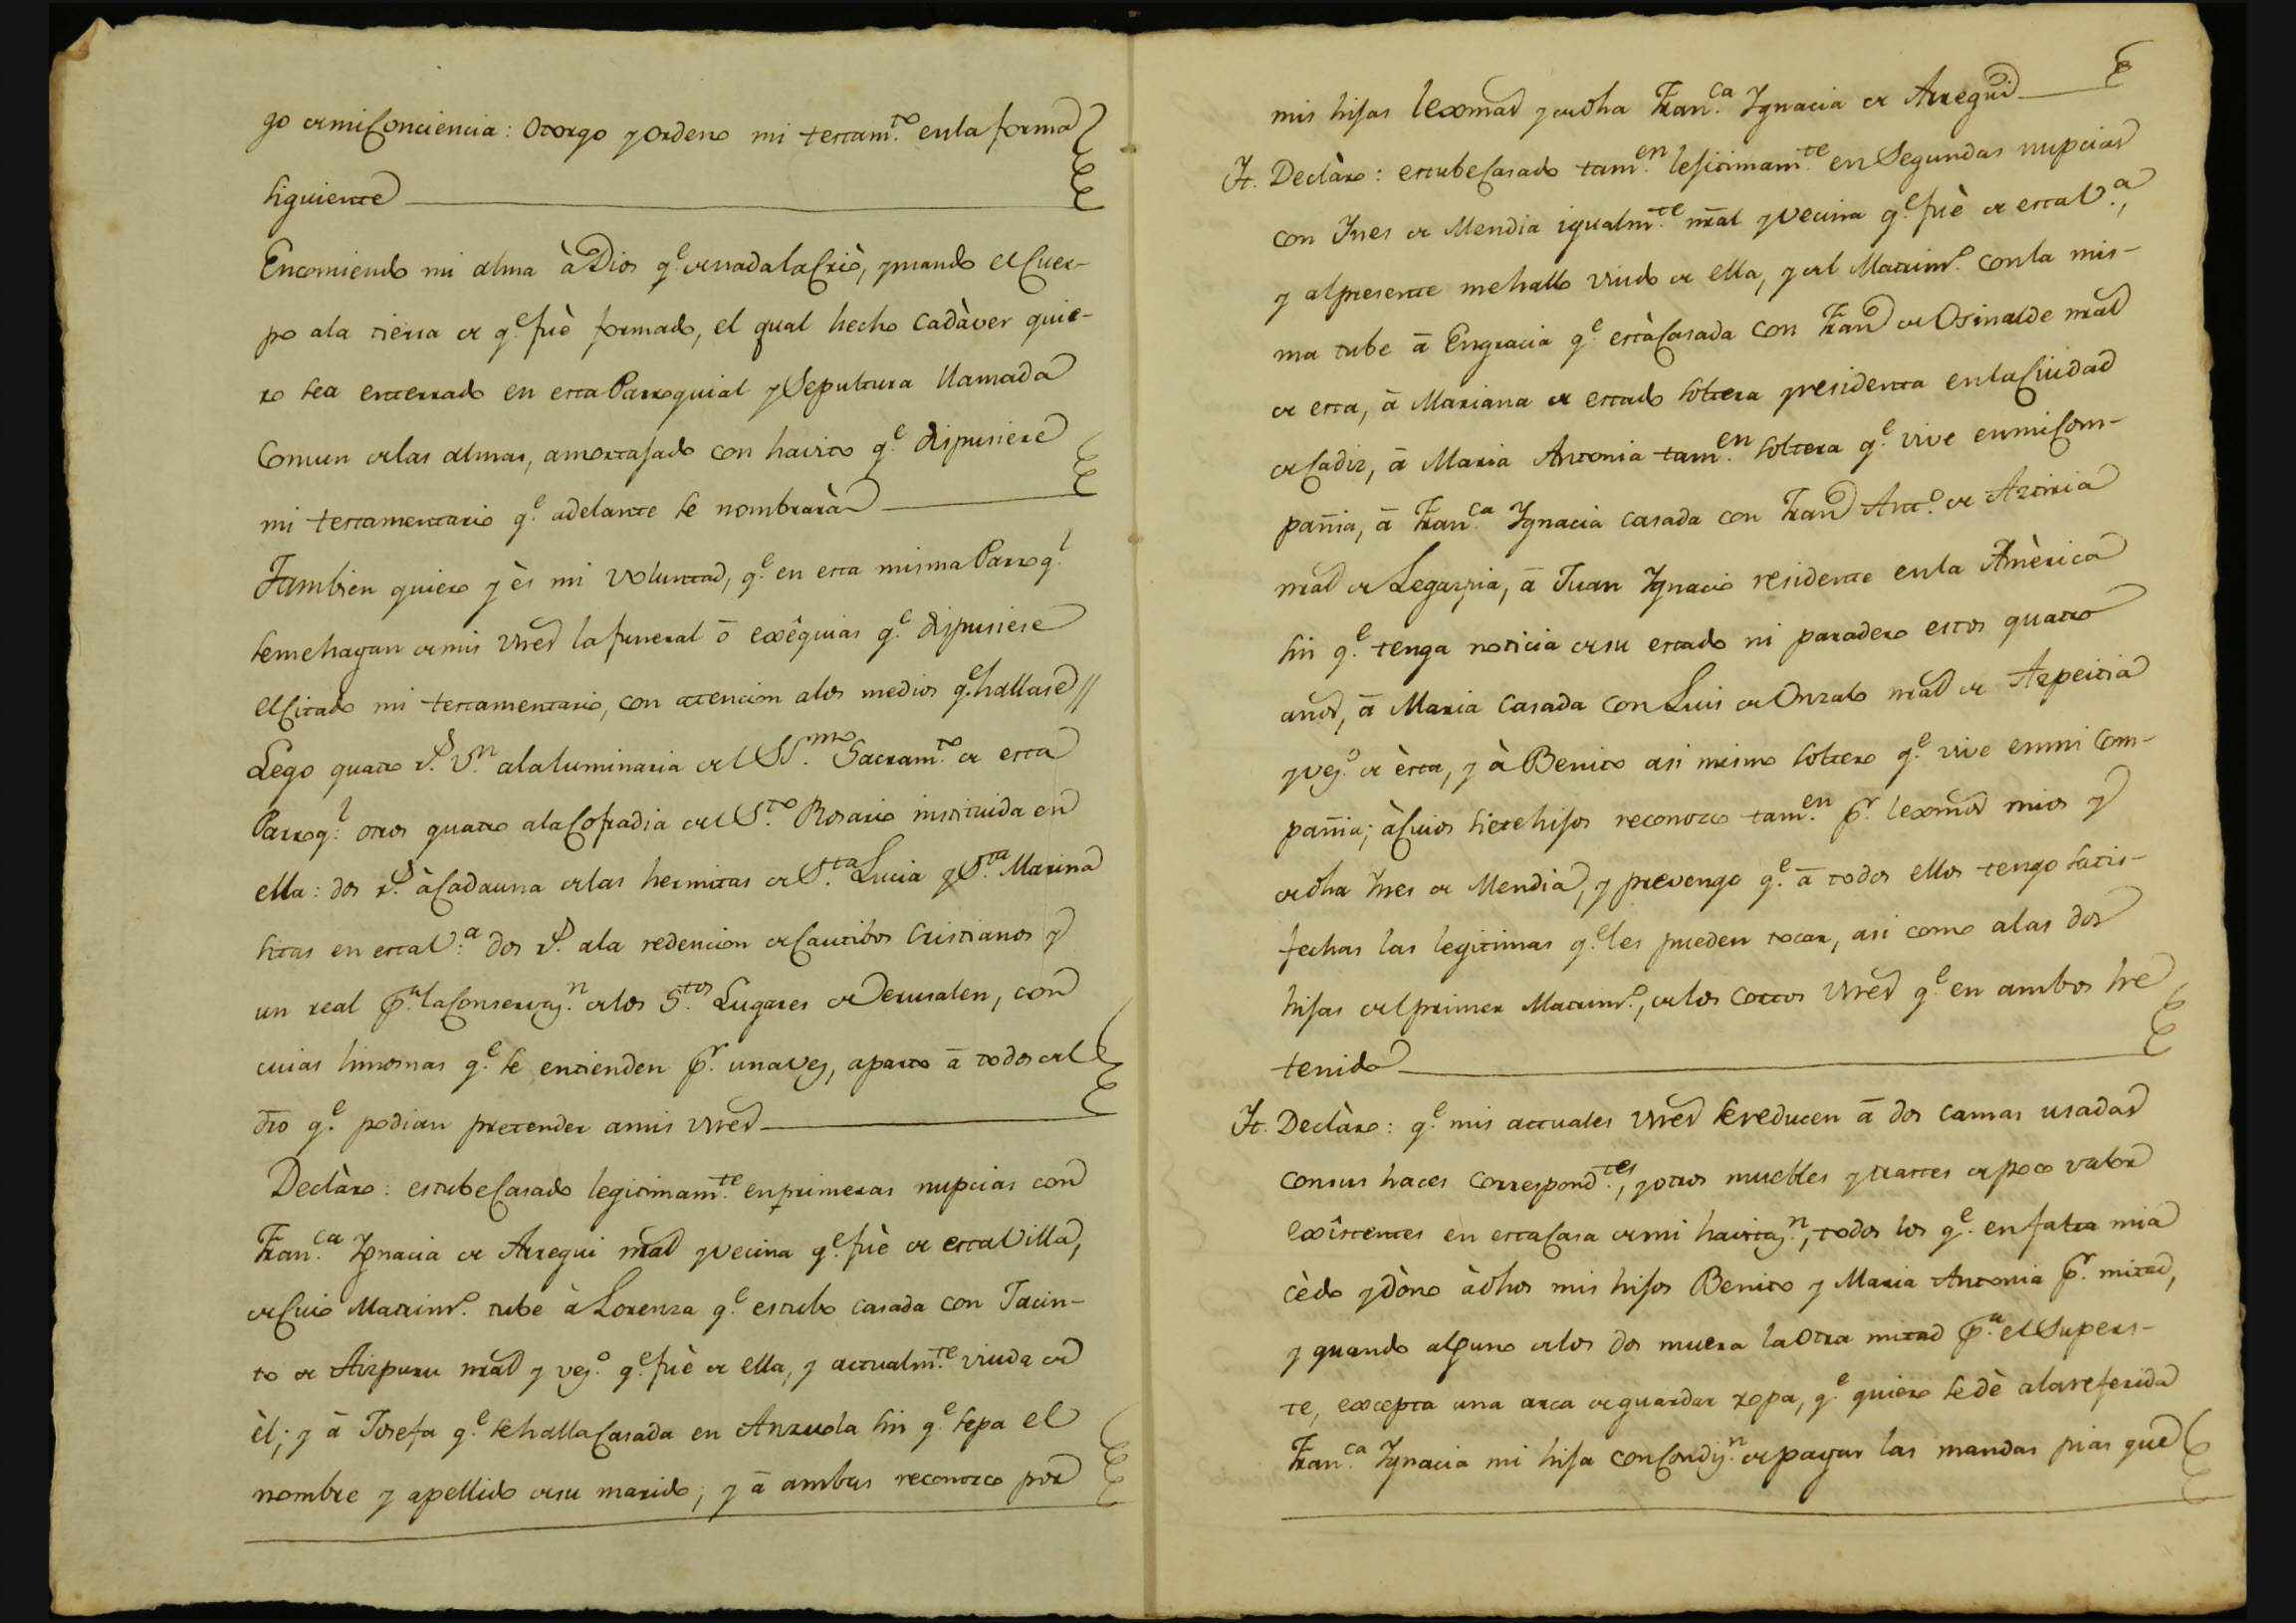 go de mi Conciencia: Otorgo y Ordeno mi testam.to en la forma
siguiente
Encomiendo mi alma à Dios q.e de nada la Criò, y mando el Cuer-
po a la tierra de q.e fuè formado, el qual hecho cadàver quie-
ro sea enterrado en esta Parroquial y Sepultura llamada
Comun de las almas, amortajado con havito q.e dispusiere
mi testamentario q.e adelante se nombrarà
Tambien quiero y ès mi voluntad, q.e en esta misma Parroq.l
se me hagan de mis vnes la funeral ò exêquias q.e dispusiese
el Citado mi testamentario, con atencion a los medios q.e hallase//
Lego quatro r.s v.n a la luminaria del SS.mo Sacram.to de esta
Parroq.l otros quatro a la Cofradia del S.to Rosario instituida en
ella: dos r.s à Cada una de las hermitas de S.ta Lucia y S.ta Marina
sitas en esta V.a dos r.s a la redencion de Cautibos Cristianos y
un real p.a la Conservaz.n de los S.tos Lugares de Jerusalen, con
cuias limosnas q.e se entienden p.r una vez, aparto à todos del
dro q.e podian pretender a mis vnes
Declàro: estube Casado legitimam.te en primeras nupcias con
Fran.ca Ygnacia de Arregui nral y vecina q.e fuè de esta Villa,
de Cuio Matrim.o tube à Lorenza q.e estubo casada con Jacin-
to de Aizpuru nral y vez.o q.e fuè de ella, y actualm.te viuda de
èl; y à Josefa q.e se halla Casada en Anzuola sin q.e sepa el
nombre y apellido de su marido; y à ambas reconozco por
mis hijas lexmas y de dha Fran.ca Ygnacia de Arregui
Yt. Declàro: estube Casado tam.en lejitimam.te en Segundas nupcias
con Ynes de Mendia igualm.te nral y vecina q.e fuè de esta V.a,
y al presente me hallo viudo de ella, y del Matrim.o con la mis-
ma tube à Engracia q.e està Casada con Fran.co de Osinalde nral
de esta, à Mariana de estado soltera y residenta en la Ciudad
de Cadiz, à Maria Antonia tam.en soltera q.e vive en mi Com-
pañia, à Fran.ca Ygnacia casada con Fran.co Ant.o de Aztiria
nral de Legazpia, à Juan Ygnacio residente en la Amèrica
sin q.e tenga noticia de su estado ni paradero estos quatro
años, à Maria casada con Luis de Onzalo nral de Azpeitia
y vez.o de èsta, y à Benito asi mismo soltero q.e vive en mi Com-
pañia; à Cuios siete hijos reconozco tam.en p.r lexmos mios y
de dha Ynes de Mendia, y prevengo q.e à todos ellos tengo satis-
fechas las legitimas q.e les pueden tocar, asi como a las dos
hijas del primer Matrim.o, de los cortos vnes q.e en ambos he
tenido
Yt. Declàro: q.e mis actuales vnes se reducen à dos camas usadas
con sus haces correspond.tes, y otros muebles y trastes de poco valor
exîstentes en esta Casa de mi havitaz.n, todos los q.e en falta mia
cèdo y dòno à dhos mis hijos Benito y Maria Antonia p.r mitad,
y quando alguno de los dos muera la otra mitad p.a el Supers-
te, excepta una arca de guardar ropa, q.e quiero se dè a la referida
Fran.ca Ygnacia mi hija con Condiz.n de pagar las mandas pias que